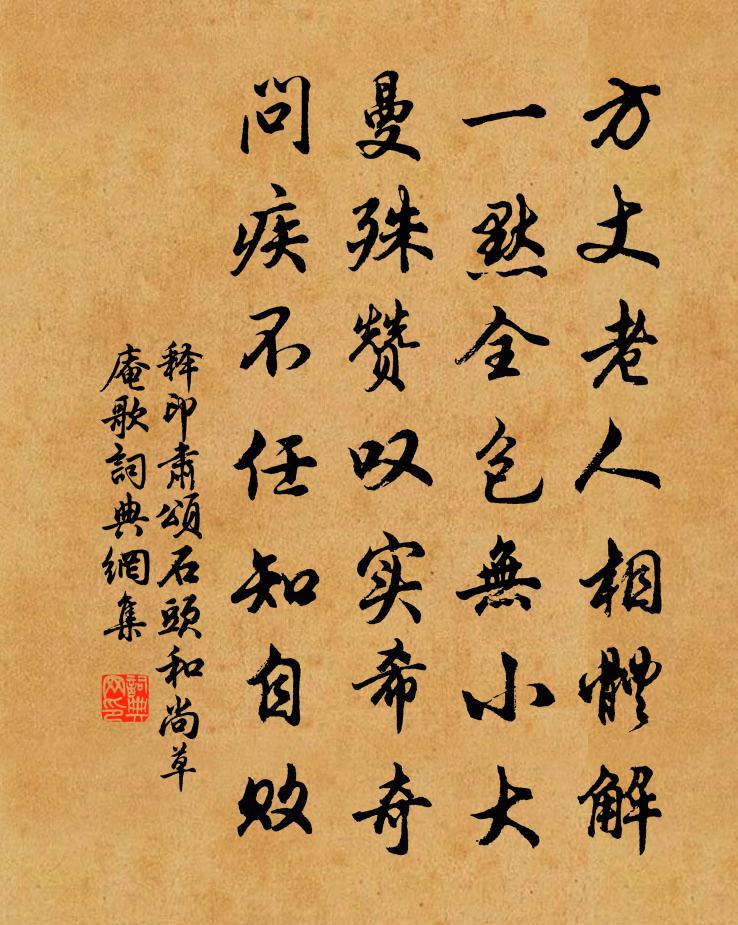 方丈老人相體解
一點全包無小大
曼殊赞叹实希奇
問疾不任知自敗
释印肃頌石頭和尚草
庵歌詞典網集
詞典網印